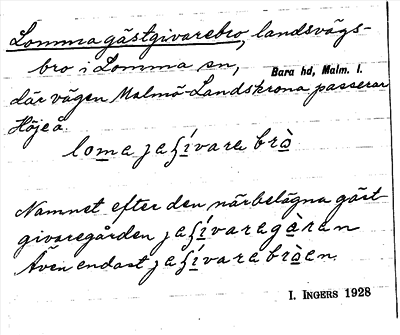 Lomma gästgivarebro, landsvägs-
bro i Lomma sn, Bara hd, Malm. l.
där vägen Malmö-Landskrona passerar
Höje å.
loma jaʃívara brò
Namnet efter den närbelägna gäst
givaregården jaʃívaragàran
Även endast jaʃívarabròen.
I. INGERS 1928